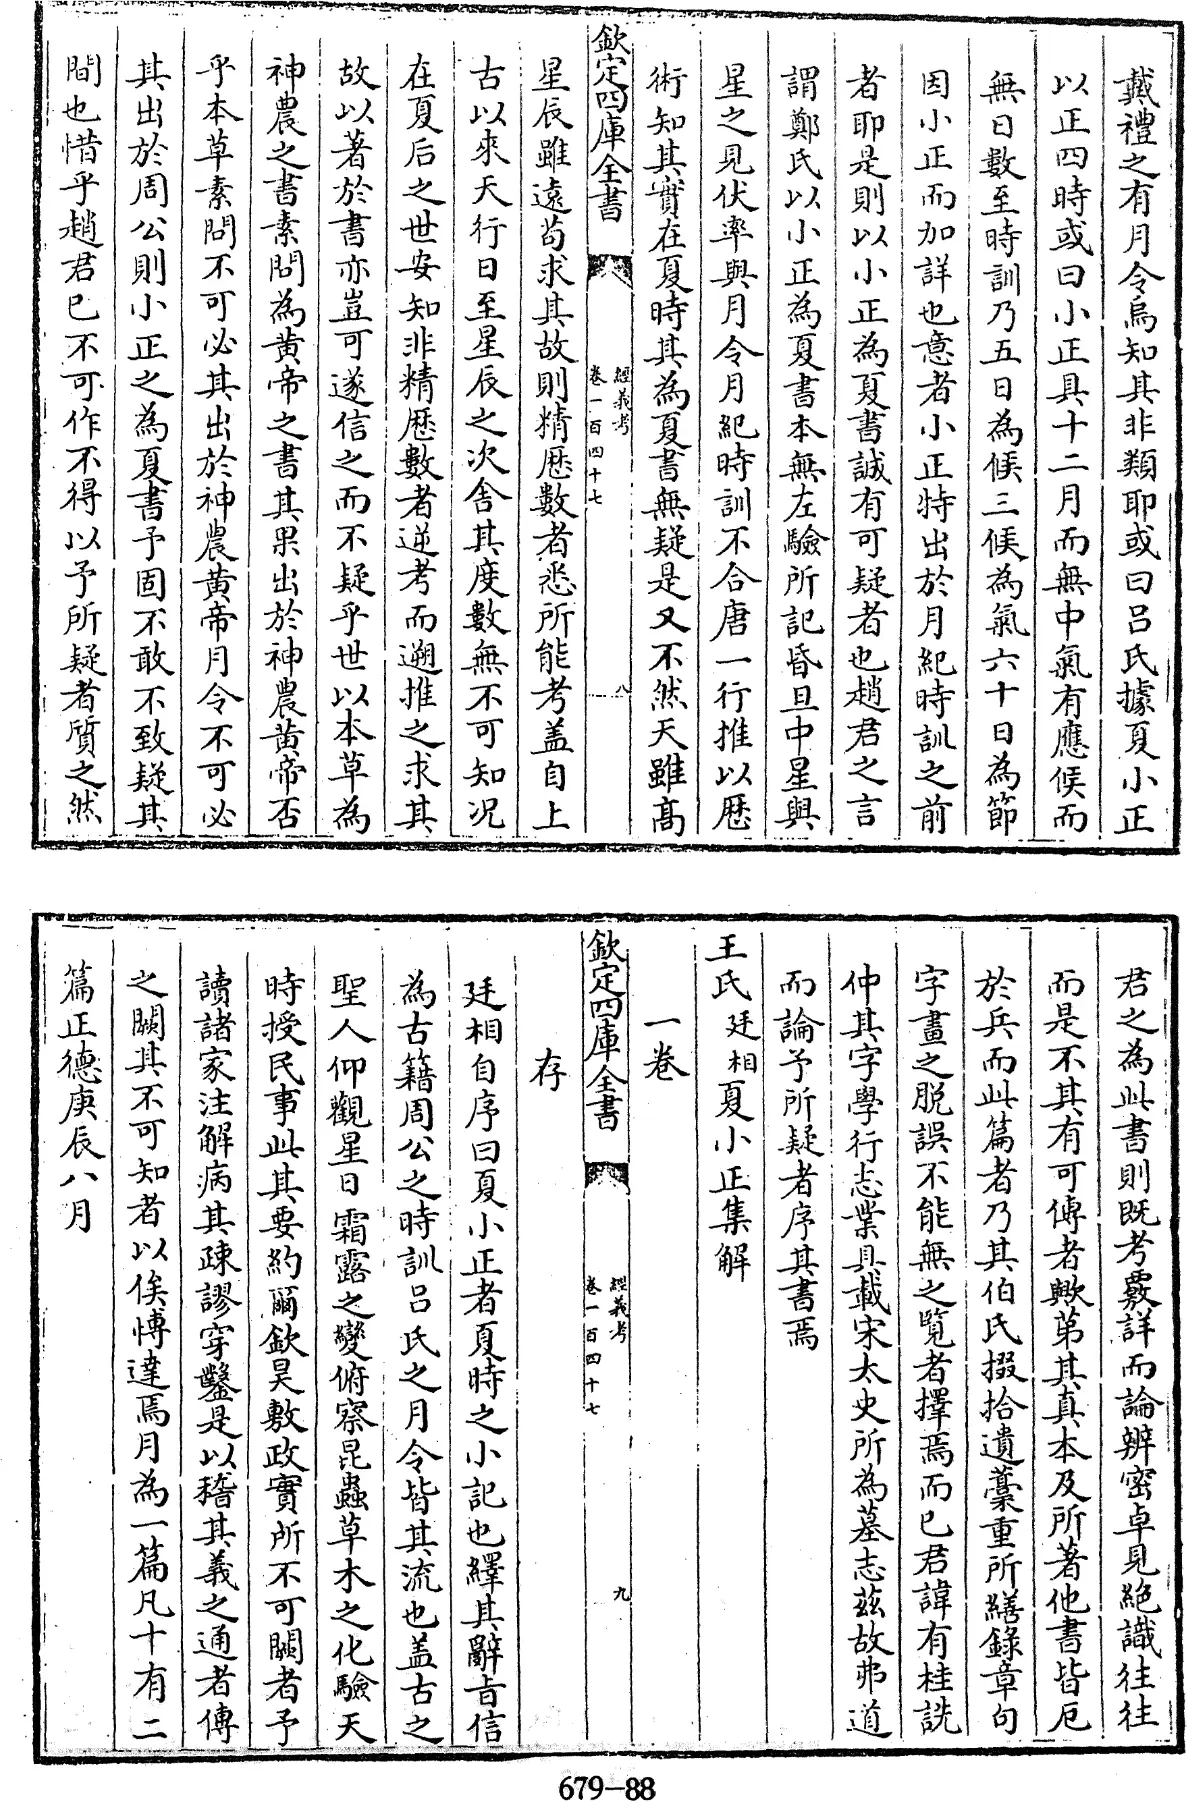 戴禮之有月令烏知其非類耶或曰吕氏據夏小正
以正四時或曰小正具十二月而無中氣有應候而
無日數至時訓乃五日為候三候為氣六十日為節
因小正而加詳也意者小正特出於月紀時訓之前
者耶是則以小正為夏書誠有可疑者也趙君之言
謂鄭氏以小正為夏書本無左驗所記昏旦中星與
星之見伏率與月令月紀時訓不合唐一行推以歷
術知其實在夏時其為夏書無疑是又不然天雖髙
欽定四庫全書
經義考
卷一百四十七
八
星辰雖遠茍求其故則精歷數者悉所能考盖自上
古以來天行日至星辰之次舎其度數無不可知况
在夏后之世安知非精歷數者逆考而遡推之求其
故以著於書亦豈可遂信之而不疑乎世以本草為
神農之書素問為黄帝之書其果出於神農黄帝否
乎本草素問不可必其出於神農黄帝月令不可必
其出於周公則小正之為夏書予固不敢不致疑其
間也惜乎趙君已不可作不得以予所疑者質之然
君之為此書則既考覈詳而論辨密卓見絶識往往
而是不其有可傳者歟第其真本及所著他書皆厄
於兵而此篇者乃其伯氏掇拾遺藁重所繕錄章句
字畫之脱誤不能無之覽者擇焉而已君諱有桂詵
仲其字學行志業具載宋太史所為墓志茲故弗道
而論予所疑者序其書焉
王氏廷相夏小正集解
一卷
欽定四庫全書
經義考
卷一百四十七
九
存
廷相自序曰夏小正者夏時之小記也繹其辭㫖信
為古籍周公之時訓吕氏之月令皆其流也盖古之
聖人仰觀星日霜露之變俯察昆蟲草木之化驗天
時授民事此其要約爾欽昊敷政實所不可闕者予
讀諸家注解病其疎謬穿鑿是以稽其義之通者傳
之闕其不可知者以俟博達焉月為一篇凡十有二
篇正德庚辰八月
679-88